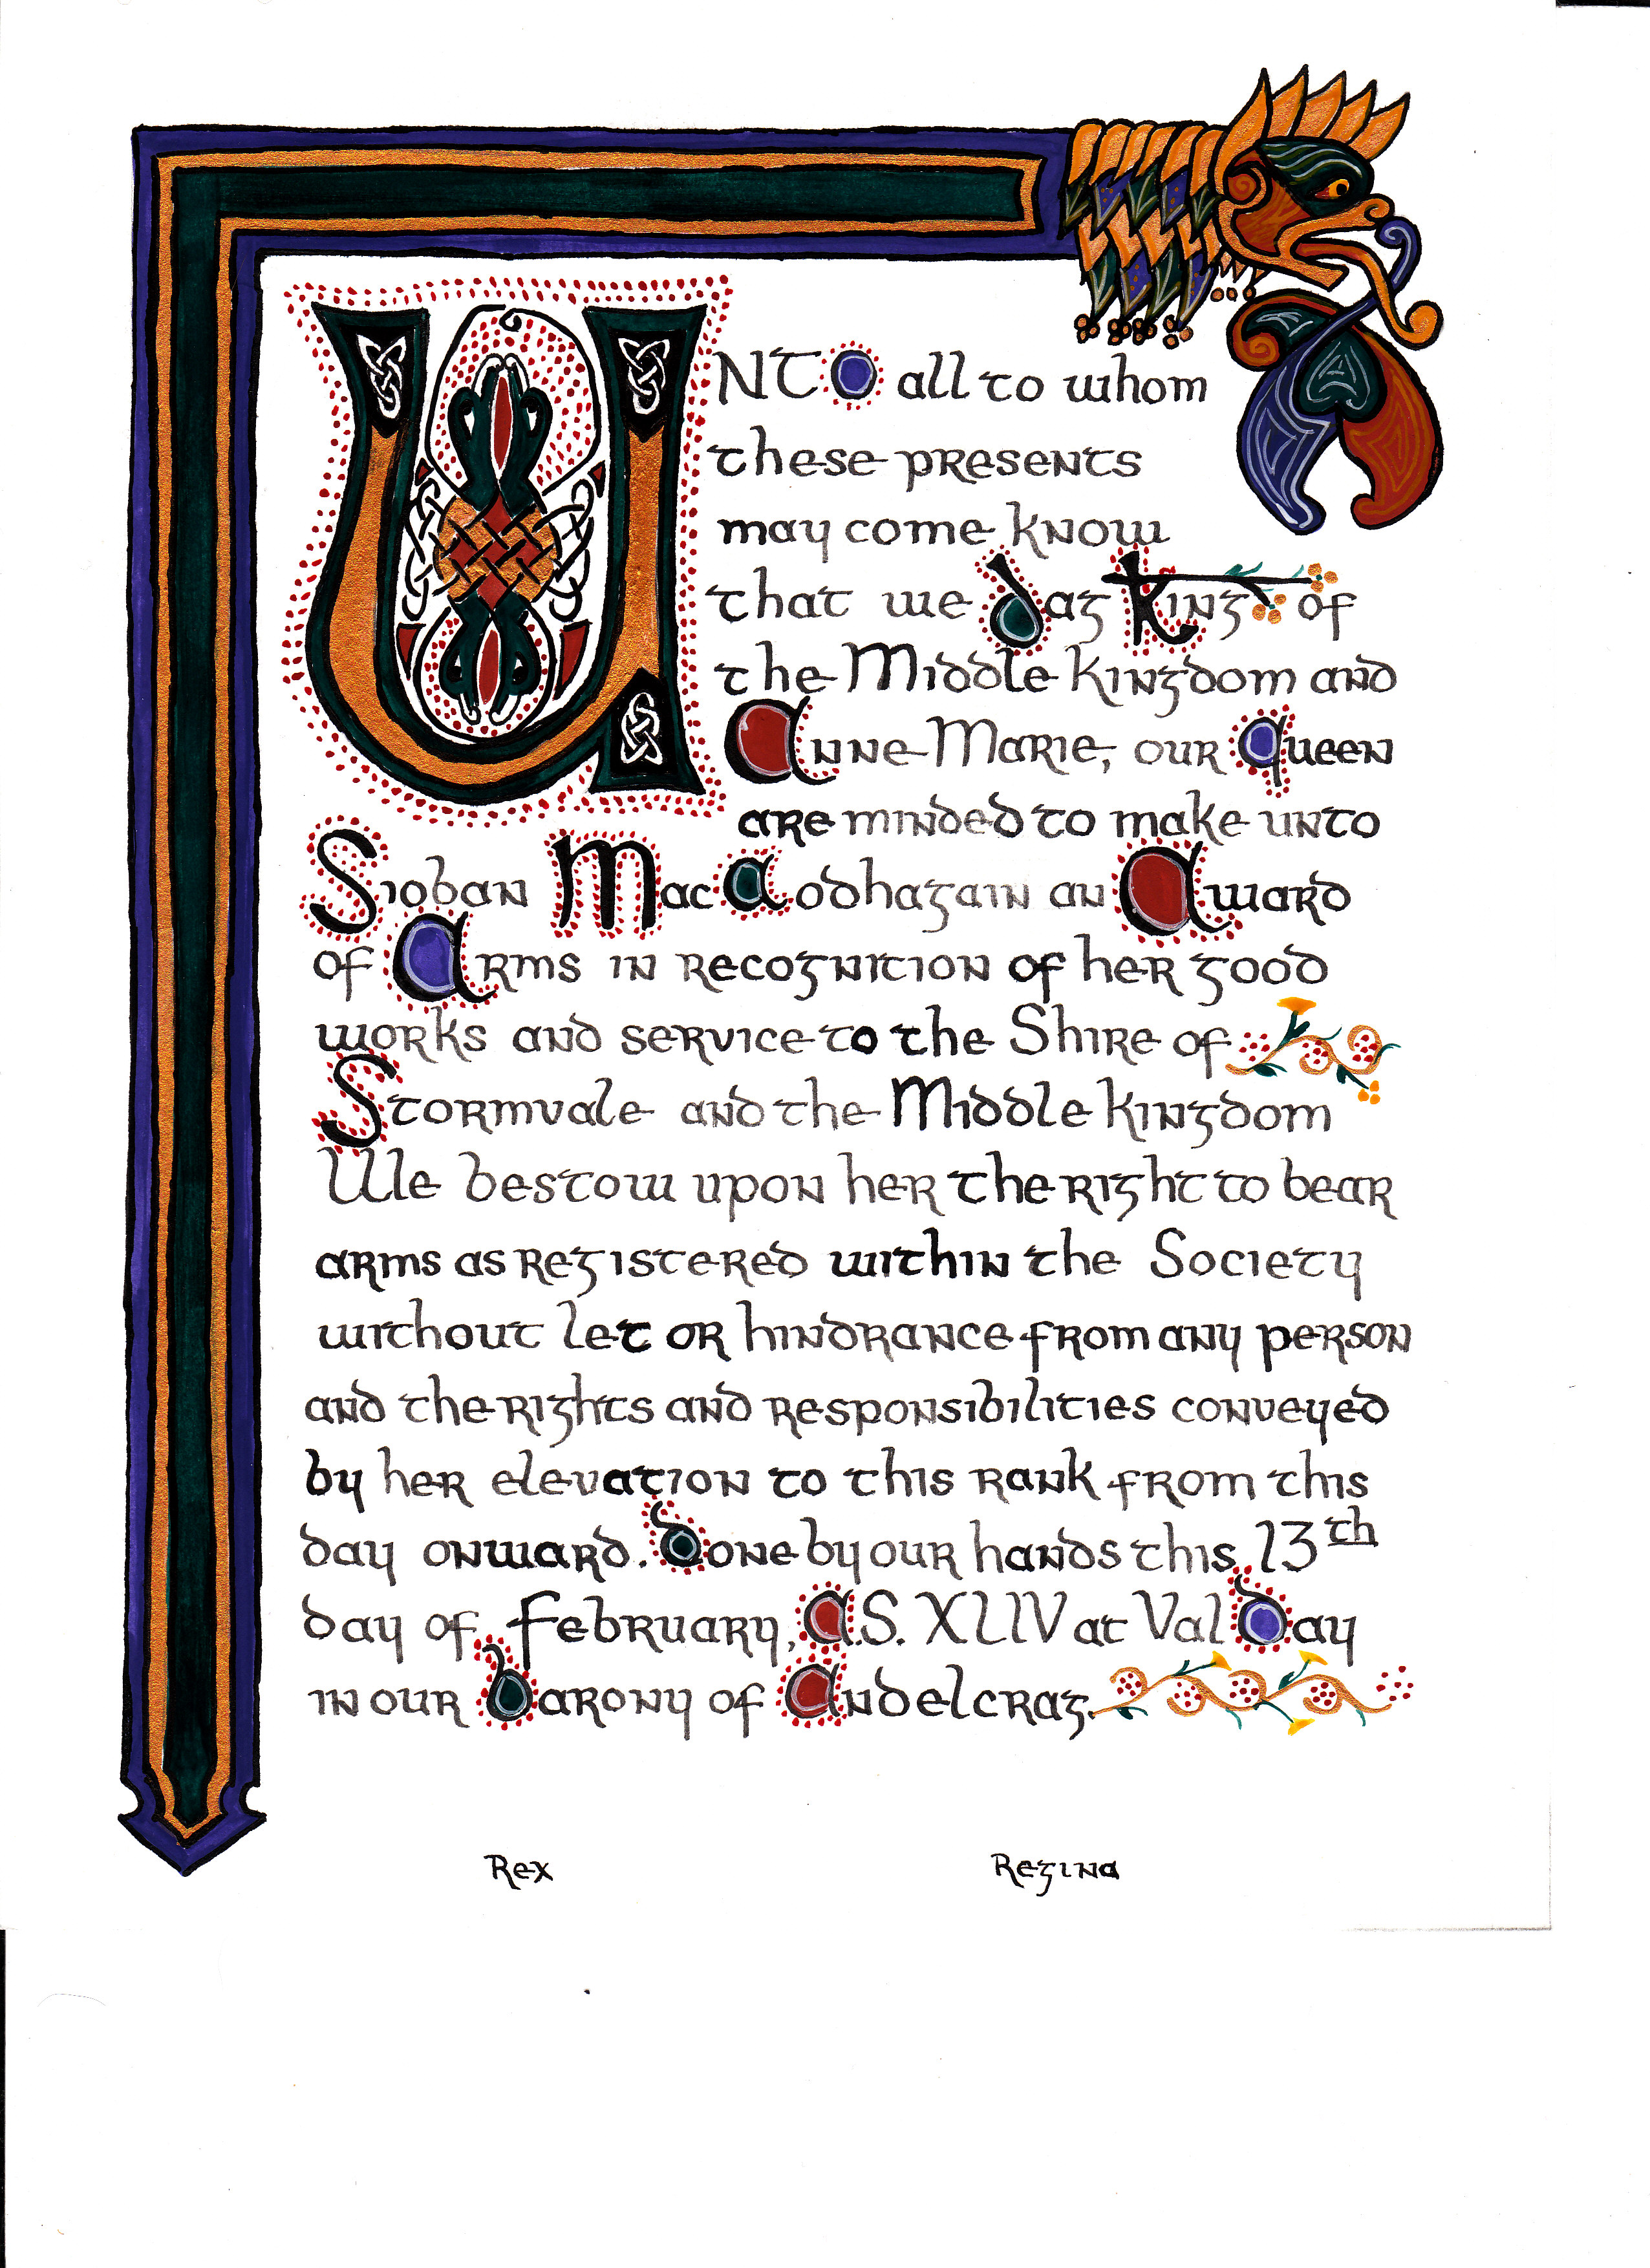 UNTO all to whom
these presents
may come know
that we Dag King of
the Middle Kingdom and
Anne-Marie, our Queen
are minded to make unto
Sioban Mac Aodhagain an Award
of Arms in recognition of her good
works and service to the Shire of
Stormvale and the Middle Kingdom
We bestow upon her the right to bear
arms as registered within the Society
without let or hindrance from any person
and the rights and responsibilities conveyed
by her elevation to this rank from this
day onward. Done by our hands this 13th
day of February, A.S. XLIV at Val Day
in our Barony of Andelcrag.
Rex Regina